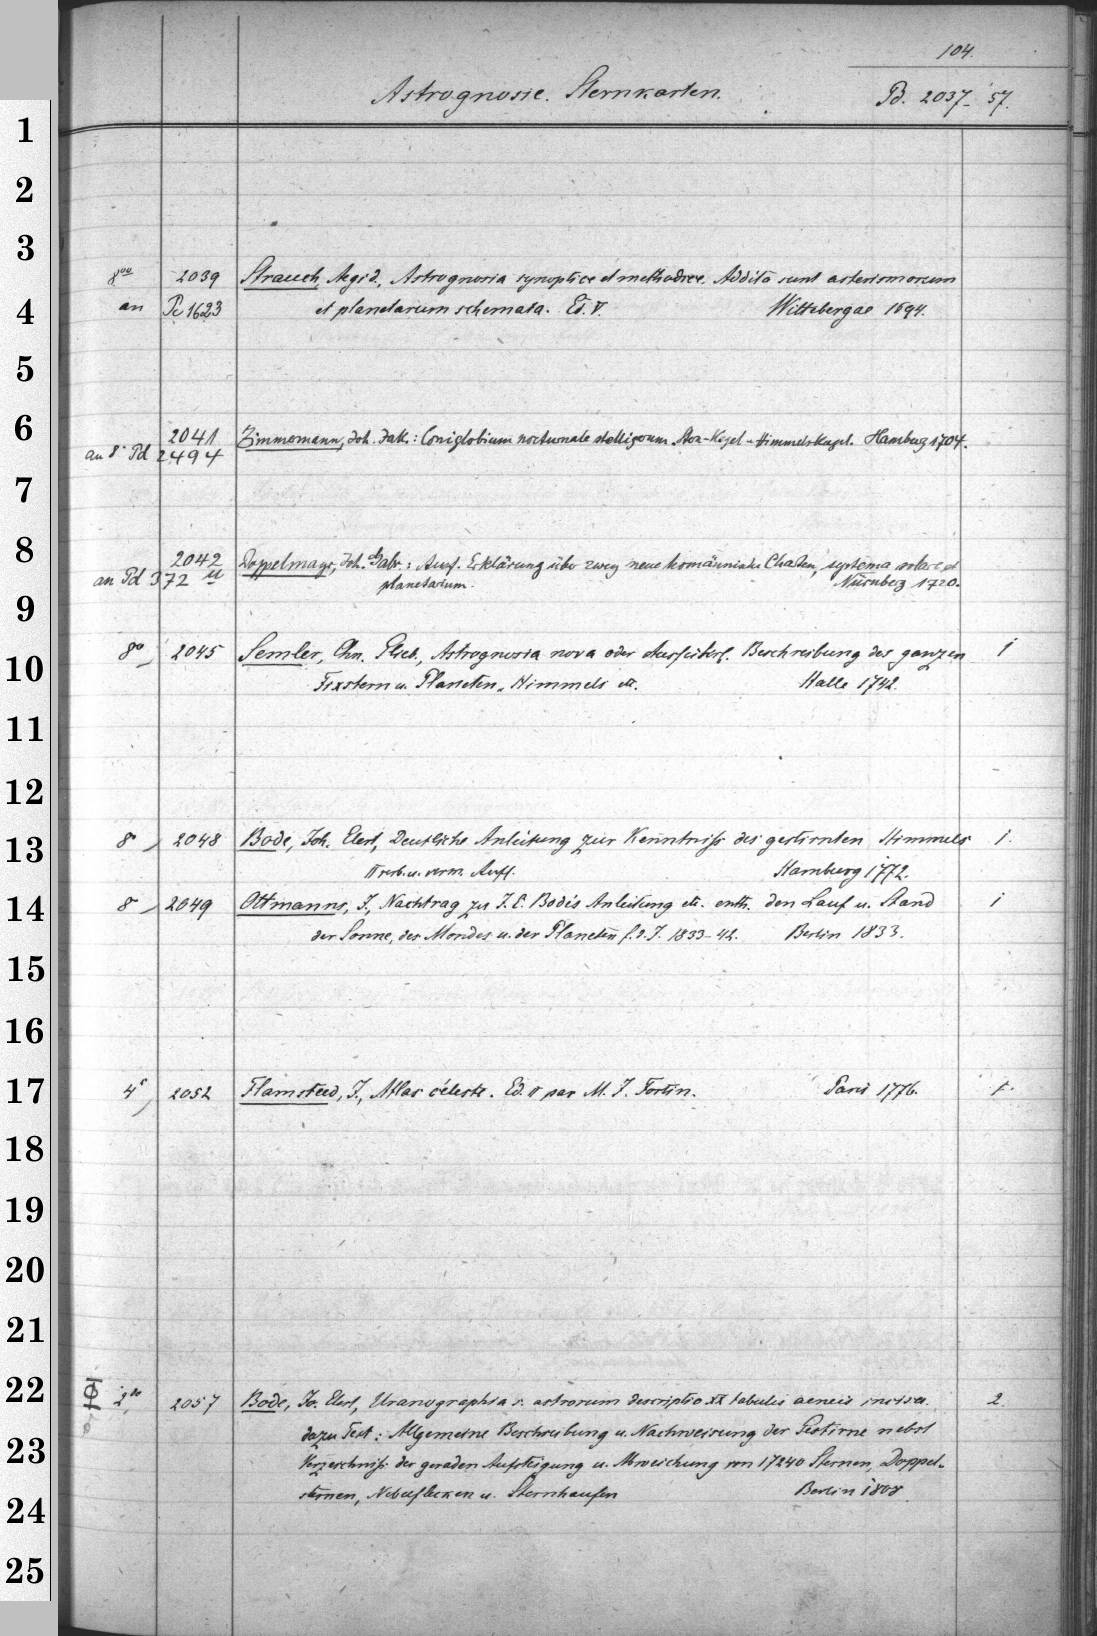 104.
Astrognosie. Sternkarten.
Pd. 2037-57.
1
2
3
8vo 2039 Strauch, Aegid., Astrognosia synoptice et methodice. Addita sunt asterismorum
4
an Pc 1623 et planetarum schemata. Ed. V. Wittebergae 1694.
5
6
2041 Zimmermann, Joh. Jak.: Coniglobium nocturnale stelligerum. Stern-Kegel - Himmelskugel. Hamburg 1704.
an 8° Pd 2494
7
8
2042 Doppelmayr, Joh. Gabr.: Ausf. Erklärung über zwey neue homännische Charten, systema solare et
an Pd 372 planetarium. Nürnberg 1720.
9
8° 2045 Semler, Chn. Glieb., Astrognosia nova oder Ausführl. Beschreibung des ganzen 1
10
Fixstern u. Planeten-Himmels etc. Halle 1742.
11
12
8° 2048 Bode, Joh. Elert, Deutliche Anleitung zur Kenntniss des gestirnten Himmels 1.
13
II verb. u. verm. Aufl. Hamburg 1772.
14
8° 2049 Oltmanns, J., Nachtrag zu J. E. Bode's Anleitung etc. enth. den Lauf u. Stand 1
der Sonne, des Mondes u. der Planeten f. d. J. 1833-42. Berlin 1833.
15
16
17
4° 2052 Flamsteed, J., Atlas céleste. Ed. II par M. J. Fortin. Paris 1776. 1.
18
19
20
21
22
2do 2057 Bode, Jo. Elert, Uranographia s. astrorum descriptio XX tabulis aeneis incisa. 2.
dazu Text: Allgemeine Beschreibung u. Nachweisung der Gestirne nebst
23
Verzeichniss der geraden Aufsteigung u. Abweichung von 17240 Sternen, Doppel-
sternen, Nebelflecken u. Sternhaufen Berlin 1808
24
25